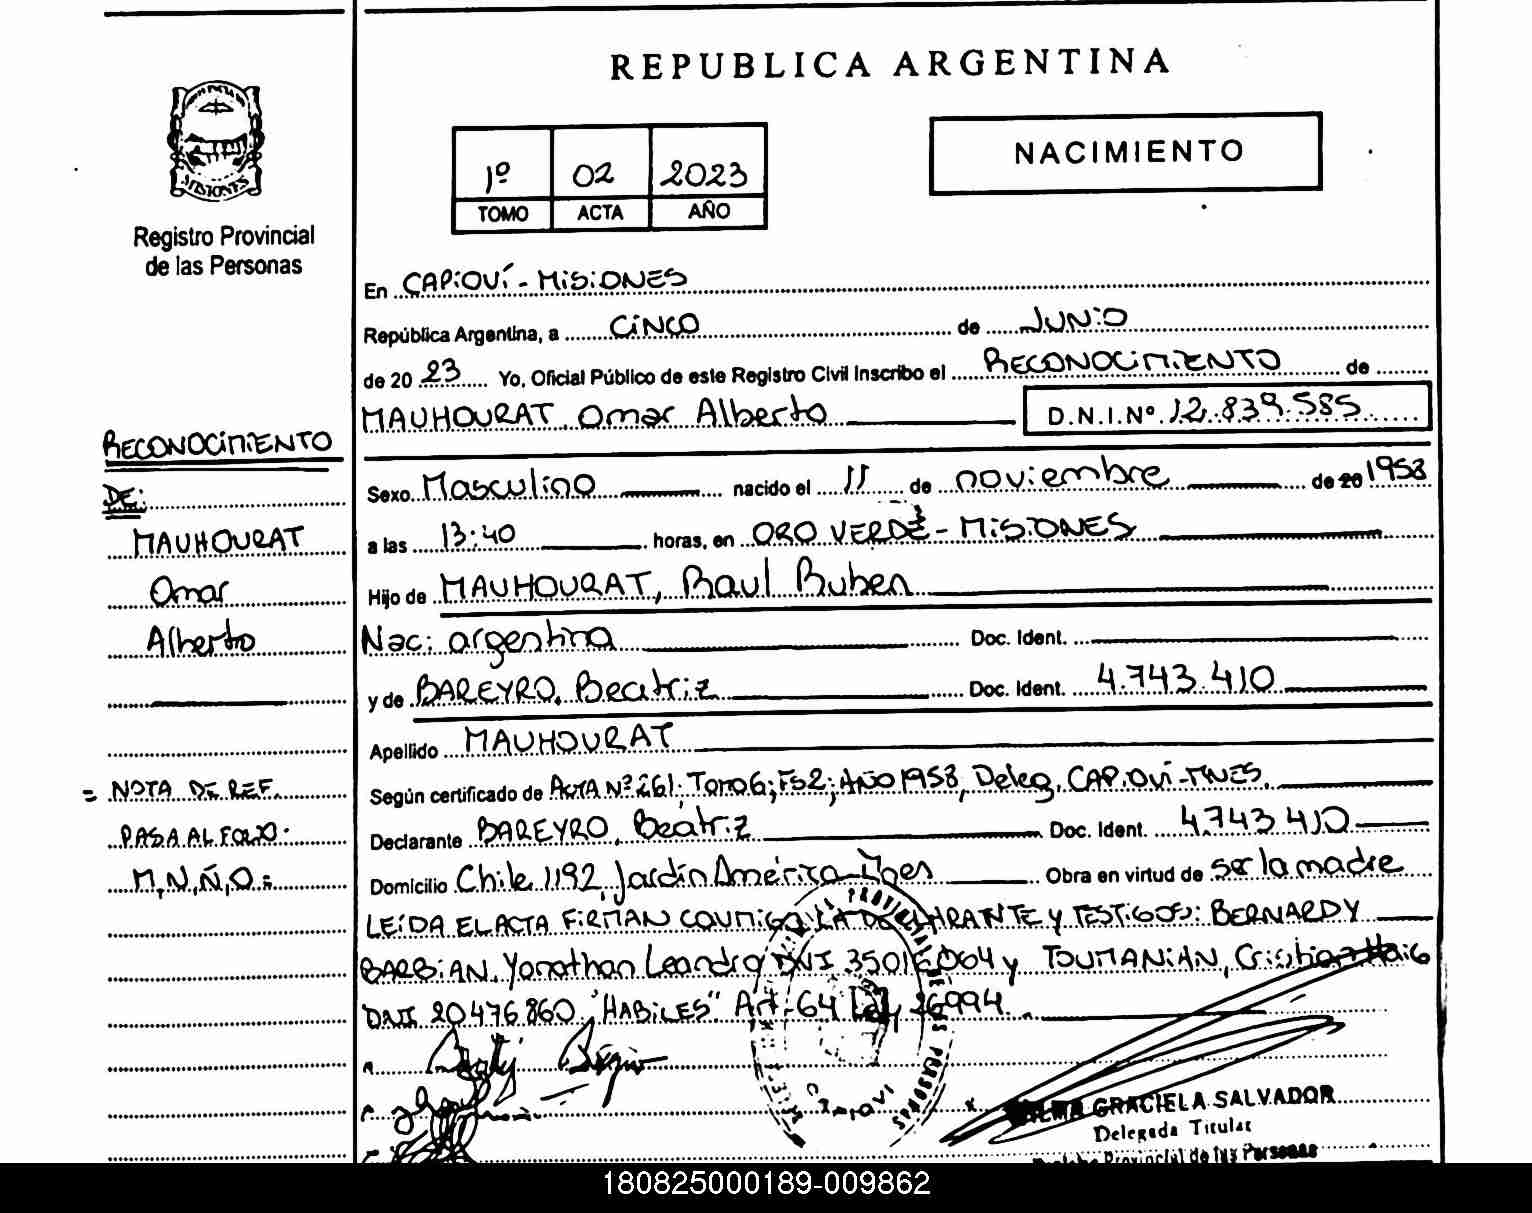 REPUBLICA ARGENTINA
MISIONES
Registro Provincial
de las Personas
1º 02 2023
TOMO ACTA AÑO
NACIMIENTO
En CAPIOVÍ - MISIONES
República Argentina, a CINCO de JUNIO
de 20 23 Yo, Oficial Público de este Registro Civil Inscribo el RECONOCIMIENTO de
MAUHOURAT, Omar Alberto D.N.I.Nº 12.839.585
RECONOCIMIENTO
DE:
MAUHOURAT
Omar
Alberto
= NOTA DE REF.
PASA AL FOLIO:
M,N,Ñ,O=
Sexo Masculino nacido el 11 de noviembre de 20 1958
a las 13:40 horas, en ORO VERDE - MISIONES
Hijo de MAUHOURAT, Raul Ruben
Nac: argentina Doc. Ident.
y de BAREYRO, Beatriz Doc. Ident. 4.743.410
Apellido MAUHOURAT
Según certificado de ACTA Nº 261; Tomo 6; Fs 2; AÑO 1958, Deleg. CAPIOVI - MNES.
Declarante BAREYRO, Beatriz Doc. Ident. 4.743.410
Domicilio Chile 1192, Jardín América Mnes Obra en virtud de ser la madre
LEÍDA EL ACTA FIRMAN CONMIGO LA DECLARANTE Y TESTIGOS: BERNARDY
BARBIAN, Yonathan Leandro DNI 35016064 y TOUMANIAN, Cristian Haig
DNI 20476860 "HABILES" Art-64 Ley 26994.
CAPIOVI
GRACIELA SALVADOR
Delegada Titular
Provincial de las Personas
180825000189-009862